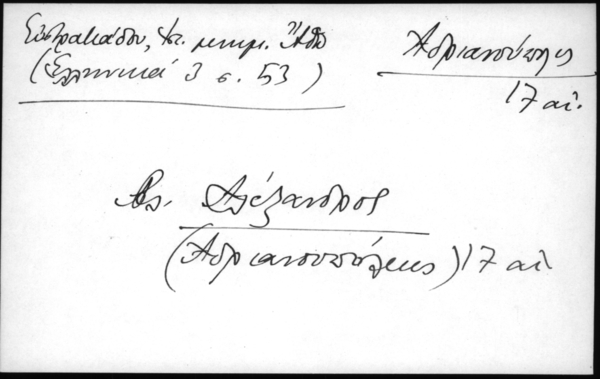 Εὐστρατιάδου, Ἱστ. μνημ. Ἄθω
(Ἑλληνικά 3 σ. 53)
Ἀδριανούπολις
17 αἰ.
Ἀλέξανδρος
(Ἀδριανουπόλεως) 17 αἰ